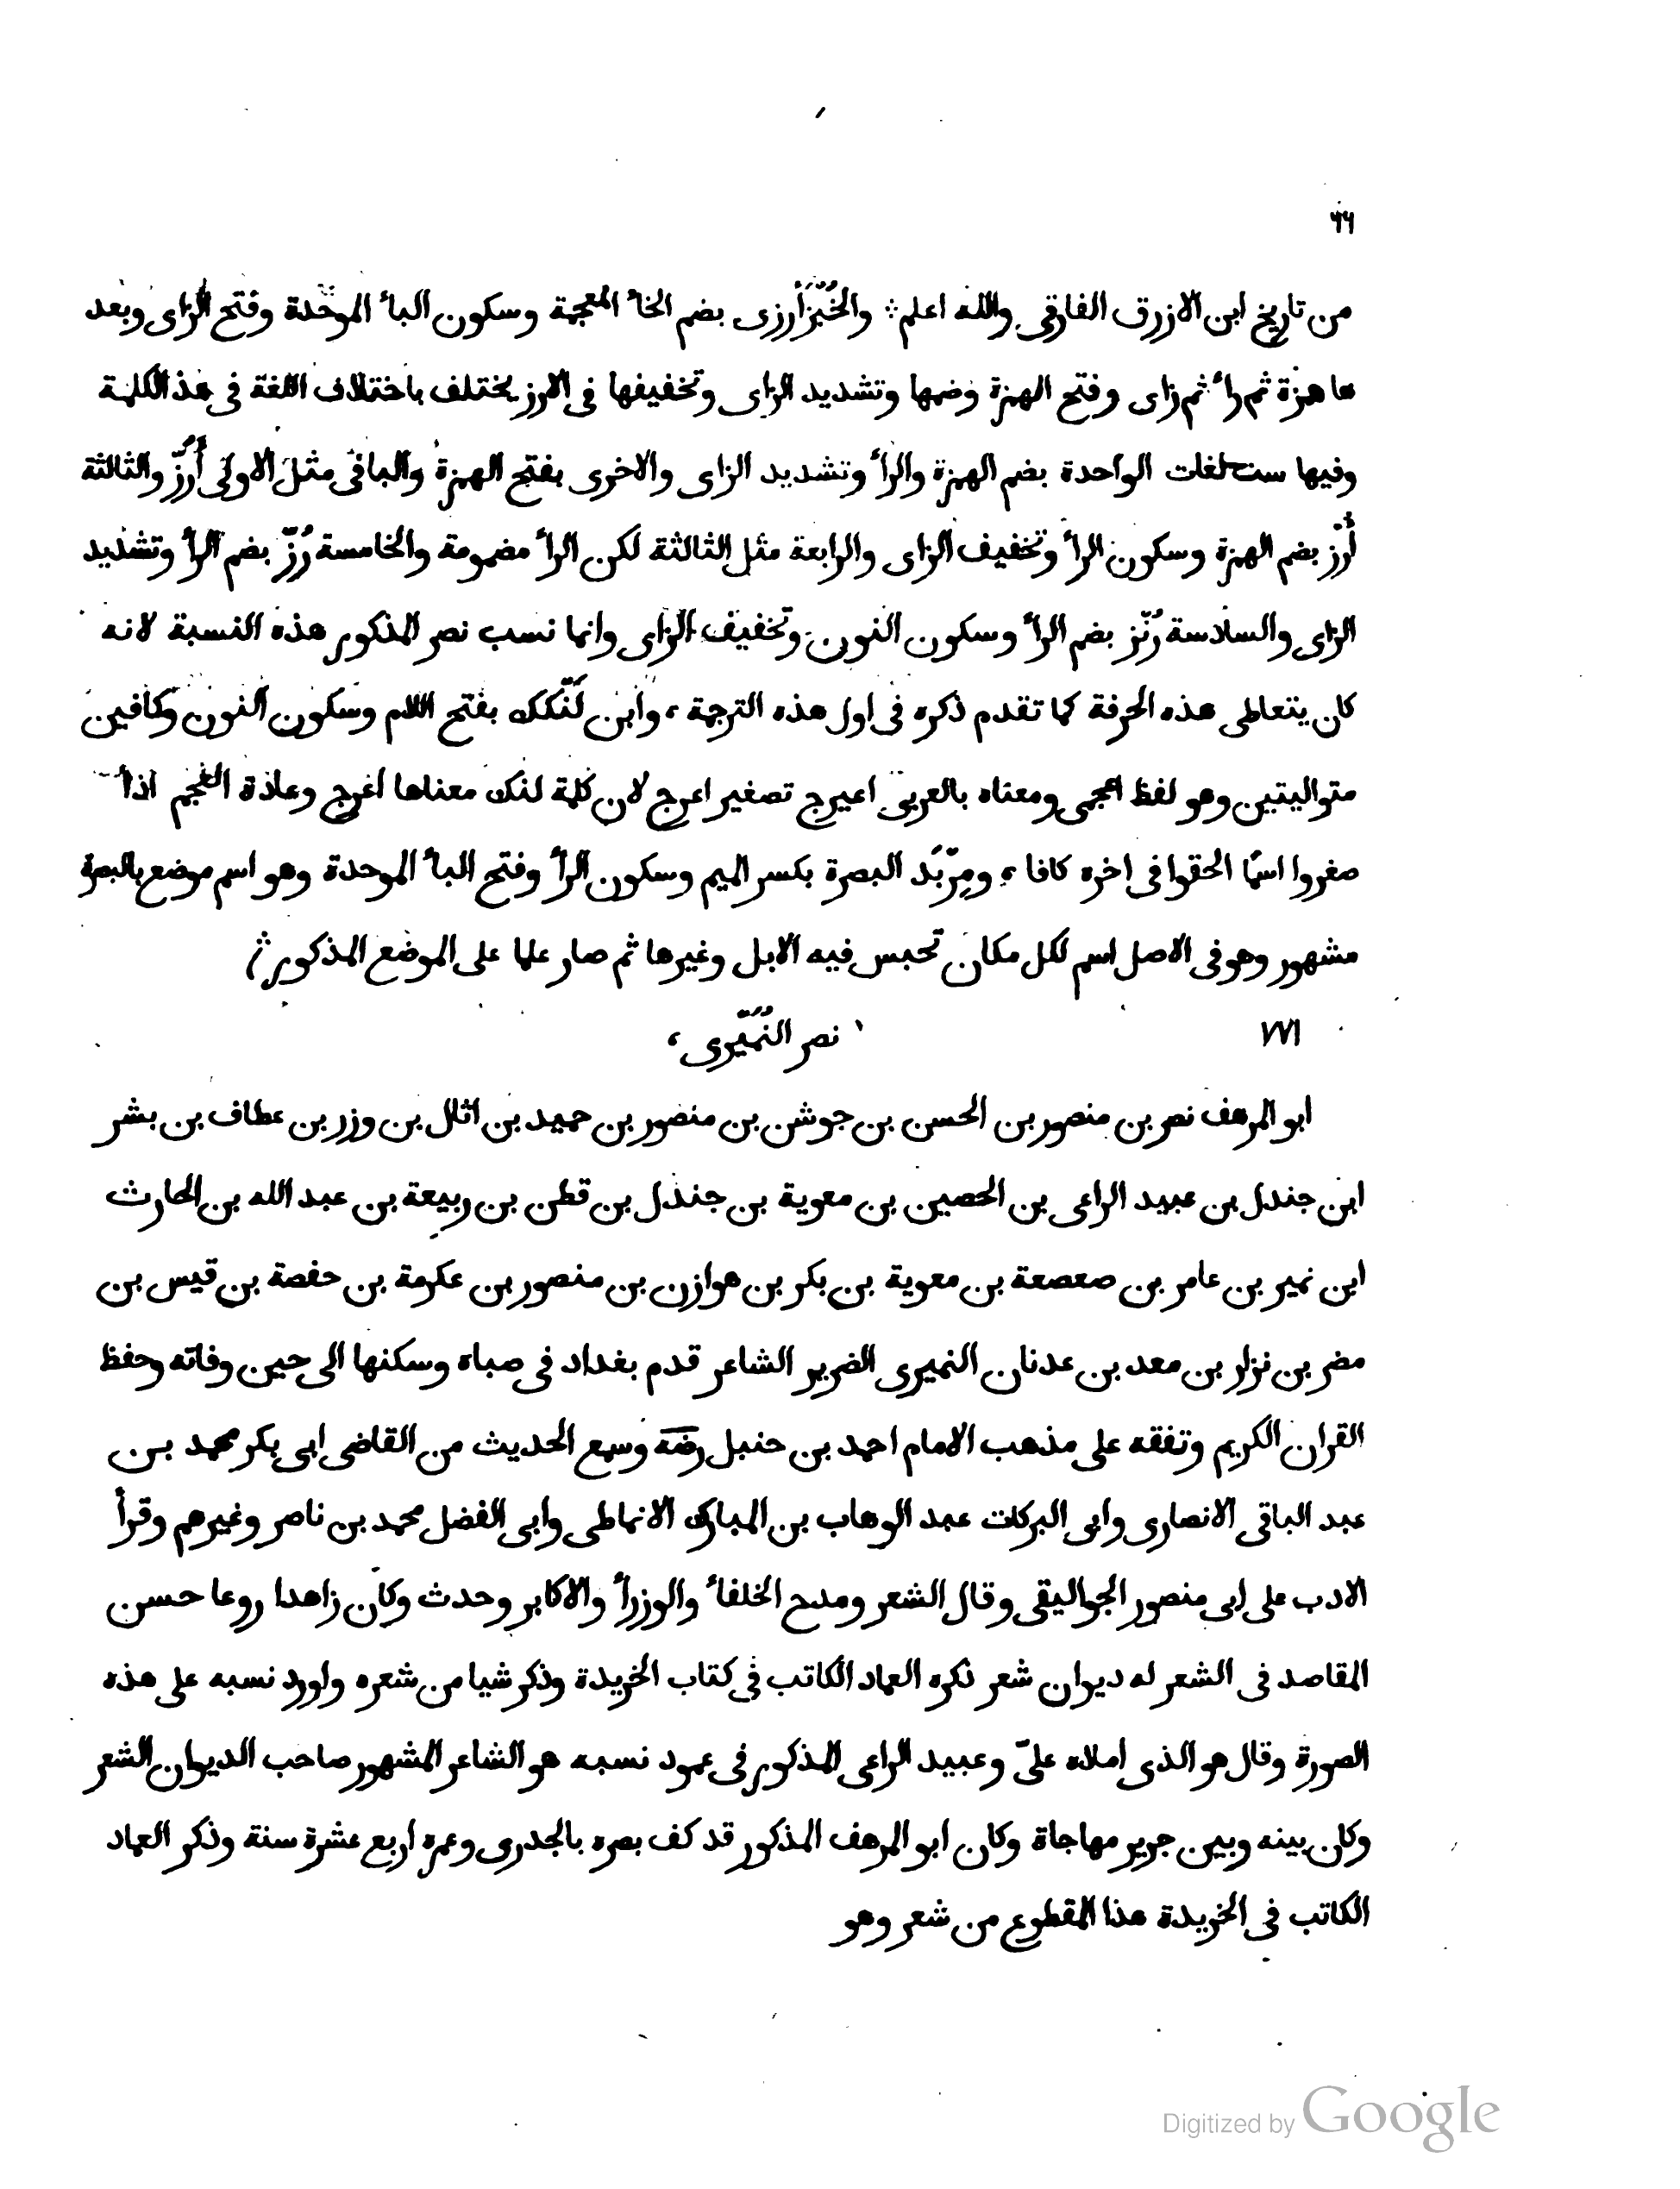 ٦٦
من تاريخ ابن الازرق الفارقى والله اعلم ؞ والخُبْزأَرُزى بضم الخأ المعجمة وسكون البأ الموحّدة وفتح الزاى وبعد
ها همزة ثم رأ ثم زاى وفتح الهمزة وضمها وتشديد الزاى وتخفيفها فى الارز يختلف باختلاف اللغة فى هذ الكلمة
وفيها ست لغات الواحدة بضم الهمزة والرأ وتشديد الزاى والاخرى بفتح الهمزة والباقى مثل الاولى أَرُزّ والثالثة
أُرْز بضم الهمزة وسكون الرأ وتخفيف الزاى والرابعة مثل الثالثة لكن الرأ مضمومة والخامسة رُزّ بضم الرأ وتشديد
الزاى والسادسة رُنْز بضم الرأ وسكون النون وتخفيف الزاى وانما نسب نصر المذكور هذه النسبة لانه
كان يتعاطى هذه الحرفة كما تقدم ذكره فى اول هذه الترجمة ، وابن لَنْكك بفتح اللام وسكون النون وكافين
متواليتين وهو لفظ اعجمى ومعناه بالعربى اعيرج تصغير اعرج لان كلمة لنك معناها اعرج وعادة العجم اذأ
صغروا اسمًا الحقوا فى اخره كافا ، ومِرْبَد البصرة بكسر الميم وسكون الرأ وفتح البأ الموحدة وهو اسم موضع بالبصرة
مشهور وهو فى الاصل اسم لكل مكان تحبس فيه الابل وغيرها ثم صار علما على الموضع المذكور ؞
٧٧١
نصر النُمَيْرى ،
ابو المرهف نصر بن منصور بن الحسن بن جوشن بن منصور بن حميد بن اثال بن وزر بن عطاف بن بشر
ابن جندل بن عبيد الراعى بن الحصين بن معوية بن جندل بن قطن بن ربيعة بن عبد الله بن الحارث
ابن نمير بن عامر بن صعصعة بن معوية بن بكر بن هوازن بن منصور بن عكرمة بن حفصة بن قيس بن
مضر بن نزار بن معد بن عدنان النميرى الضرير الشاعر قدم بغداد فى صباه وسكنها الى حين وفاته وحفظ
القران الكريم وتفقه على مذهب الامام احمد بن حنبل رضه وسمع الحديث من القاضى ابى بكر محمد بن
عبد الباقى الانصارى وابى البركات عبد الوهاب بن المبارك الانماطى وابى الفضل محمد بن ناصر وغيرهم وقرأ
الادب على ابى منصور الجواليقى وقال الشعر ومدح الخلفأ والوزرأ والاكابر وحدث وكان زاهدا روعا حسن
المقاصد فى الشعر له ديوان شعر ذكره العماد الكاتب فى كتاب الخريدة وذكر شيا من شعره واورد نسبه على هذه
الصورة وقال هو الذى املاه علىّ وعبيد الراعى المذكور فى عمود نسبه هو الشاعر المشهور صاحب الديوان الشعر
وكان بينه وبين جرير مهاجاة وكان ابو المرهف المذكور قد كف بصره بالجدرى وعمره اربع عشرة سنة وذكر العماد
الكاتب فى الخريدة هذا المقطوع من شعر وهو
Digitized by Google